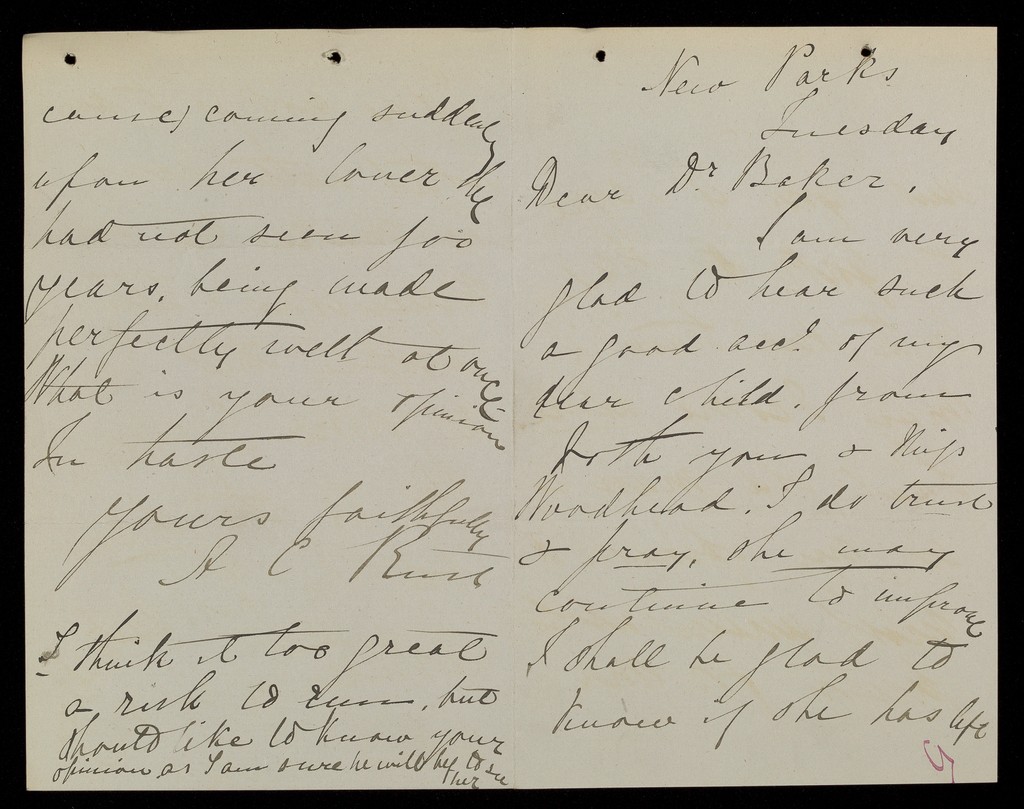 New Parks
Tuesday
Dear Dr. Baker,
I am very
glad to hear such
a good acct. of my
dear child, from
both you & Miss
Woodhead. I do trust
& pray, she may
continue to improve
I shall be glad to
know if she has left
5
cause) coming suddenly
upon her lover she
had not seen for
years, being made
perfectly well at once
What is your opinion
In haste
Yours faithfully
A C
I think it too great
a risk to run, but
should like to know your
opinion as I am sure he will be to see
her